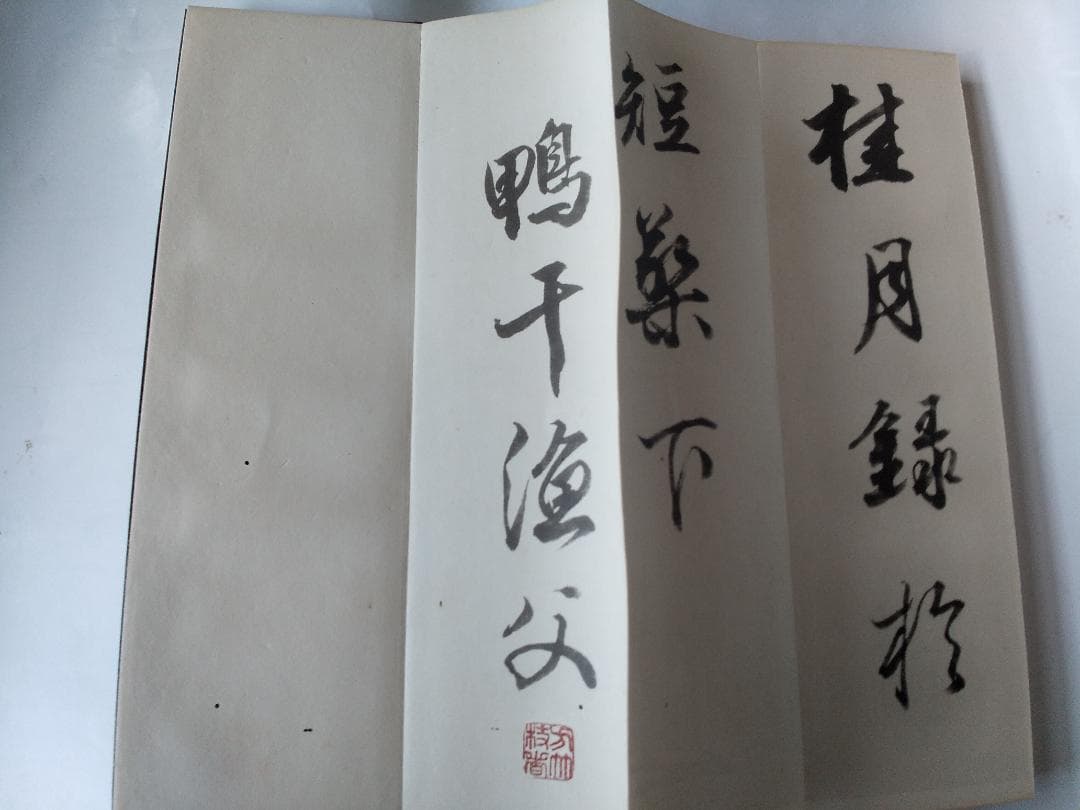 桂月録於
短檠下
鴨干漁父